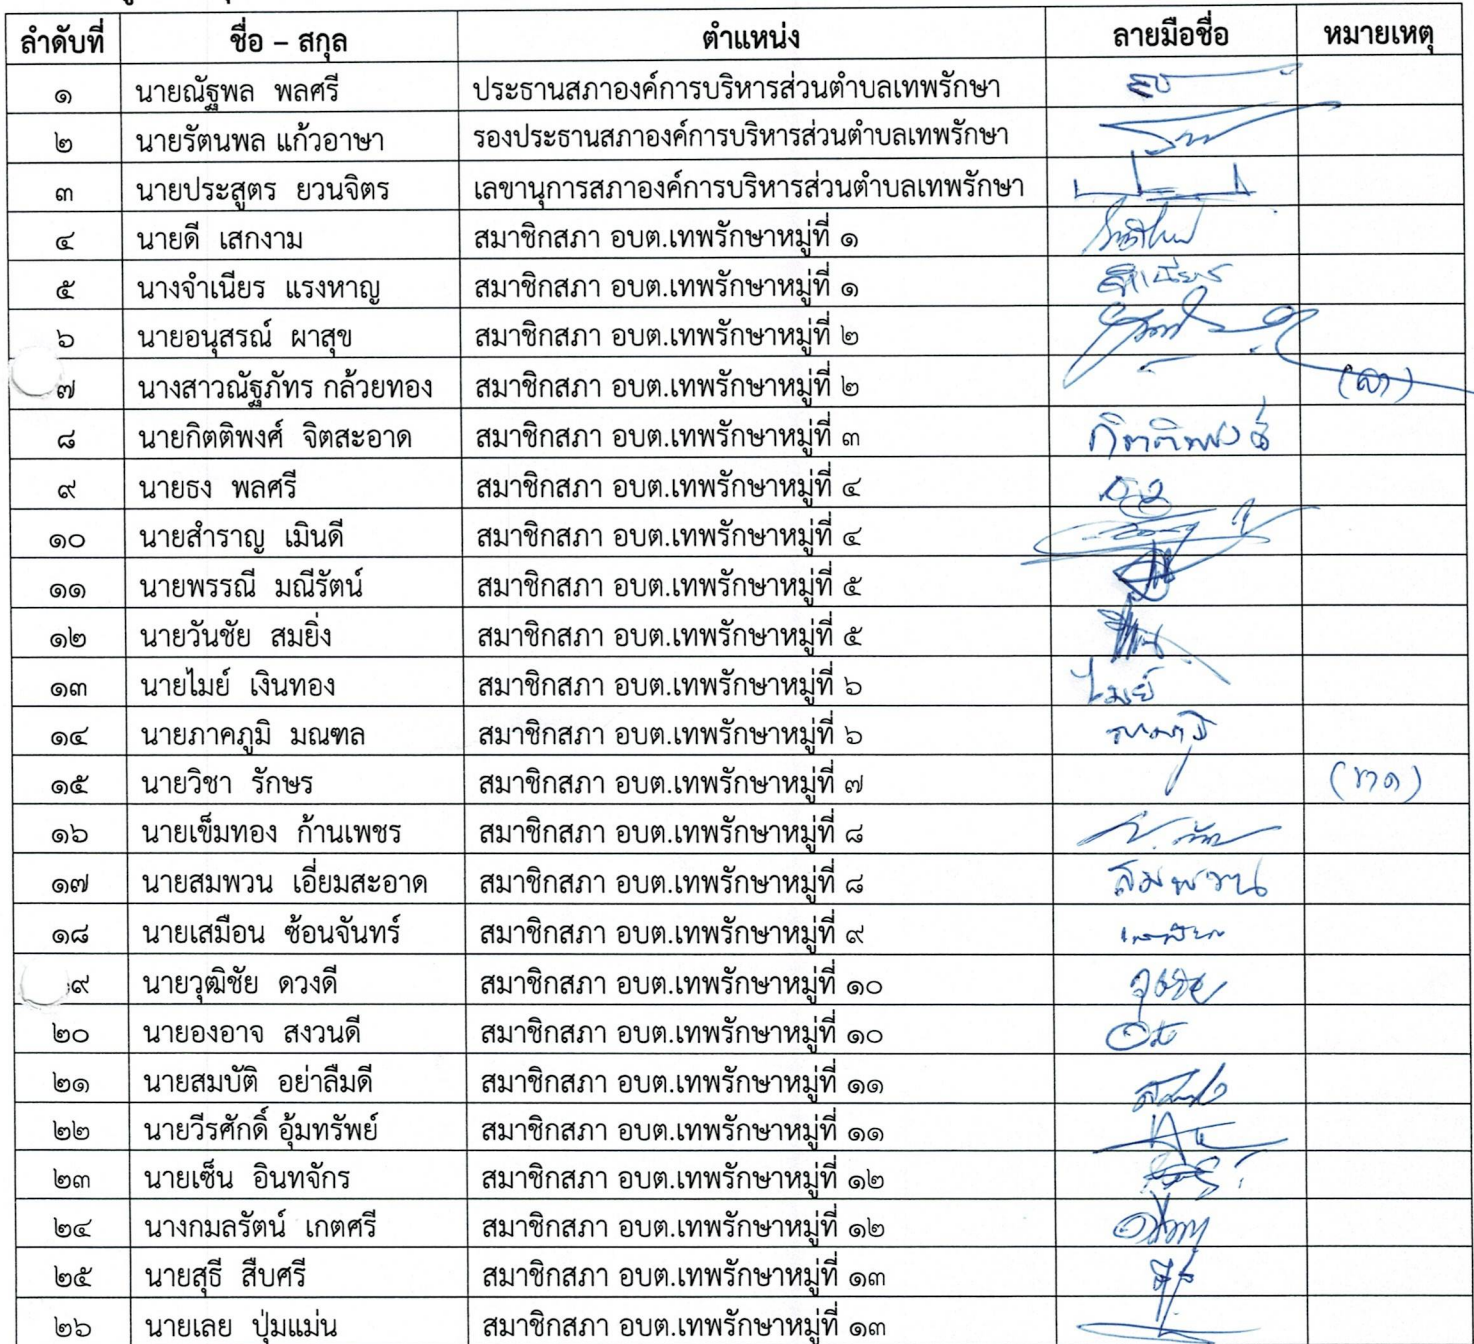 ลำดับที่ ชื่อ – สกุล ตำแหน่ง ลายมือชื่อ หมายเหตุ
๑ นายณัฐพล พลศรี ประธานสภาองค์การบริหารส่วนตำบลเทพรักษา
๒ นายรัตนพล แก้วอาษา รองประธานสภาองค์การบริหารส่วนตำบลเทพรักษา
๓ นายประสูตร ยวนจิตร เลขานุการสภาองค์การบริหารส่วนตำบลเทพรักษา
๔ นายดี เสกงาม สมาชิกสภา อบต.เทพรักษาหมู่ที่ ๑
๕ นางจำเนียร แรงหาญ สมาชิกสภา อบต.เทพรักษาหมู่ที่ ๑ จำเนียร
๖ นายอนุสรณ์ ผาสุข สมาชิกสภา อบต.เทพรักษาหมู่ที่ ๒
๗ นางสาวณัฐภัทร กล้วยทอง สมาชิกสภา อบต.เทพรักษาหมู่ที่ ๒ (ลา)
๘ นายกิตติพงศ์ จิตสะอาด สมาชิกสภา อบต.เทพรักษาหมู่ที่ ๓ กิตติพงษ์
๙ นายธง พลศรี สมาชิกสภา อบต.เทพรักษาหมู่ที่ ๔
๑๐ นายสำราญ เมินดี สมาชิกสภา อบต.เทพรักษาหมู่ที่ ๔
๑๑ นายพรรณี มณีรัตน์ สมาชิกสภา อบต.เทพรักษาหมู่ที่ ๕
๑๒ นายวันชัย สมยิ่ง สมาชิกสภา อบต.เทพรักษาหมู่ที่ ๕
๑๓ นายไมย์ เงินทอง สมาชิกสภา อบต.เทพรักษาหมู่ที่ ๖ ไมย์
๑๔ นายภาคภูมิ มณฑล สมาชิกสภา อบต.เทพรักษาหมู่ที่ ๖
๑๕ นายวิชา รักษร สมาชิกสภา อบต.เทพรักษาหมู่ที่ ๗ (ขาด)
๑๖ นายเข็มทอง ก้านเพชร สมาชิกสภา อบต.เทพรักษาหมู่ที่ ๘
๑๗ นายสมพวน เอี่ยมสะอาด สมาชิกสภา อบต.เทพรักษาหมู่ที่ ๘ สมพวน
๑๘ นายเสมือน ซ้อนจันทร์ สมาชิกสภา อบต.เทพรักษาหมู่ที่ ๙
๙ นายวุฒิชัย ดวงดี สมาชิกสภา อบต.เทพรักษาหมู่ที่ ๑๐
๒๐ นายองอาจ สงวนดี สมาชิกสภา อบต.เทพรักษาหมู่ที่ ๑๐
๒๑ นายสมบัติ อย่าลืมดี สมาชิกสภา อบต.เทพรักษาหมู่ที่ ๑๑
๒๒ นายวีรศักดิ์ อุ้มทรัพย์ สมาชิกสภา อบต.เทพรักษาหมู่ที่ ๑๑
๒๓ นายเซ็น อินทจักร สมาชิกสภา อบต.เทพรักษาหมู่ที่ ๑๒
๒๔ นางกมลรัตน์ เกตศรี สมาชิกสภา อบต.เทพรักษาหมู่ที่ ๑๒
๒๕ นายสุธี สืบศรี สมาชิกสภา อบต.เทพรักษาหมู่ที่ ๑๓
๒๖ นายเลย ปุ่มแม่น สมาชิกสภา อบต.เทพรักษาหมู่ที่ ๑๓